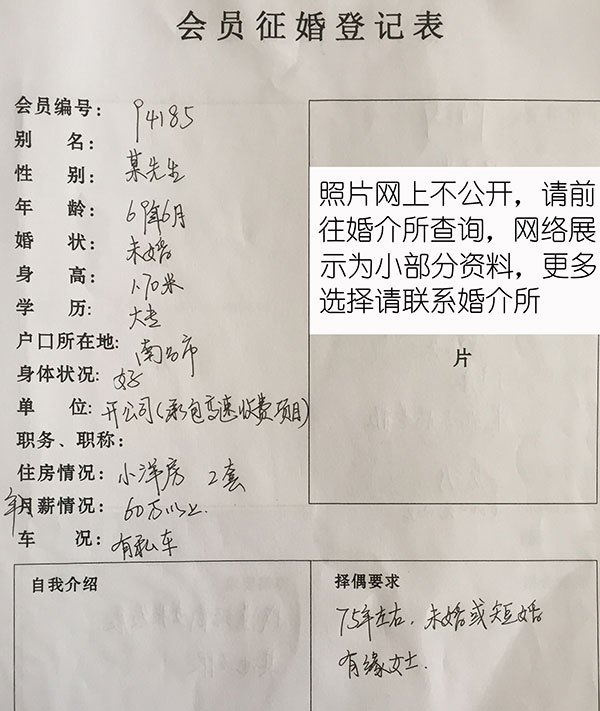 会员征婚登记表
会员编号: 94185
别 名:
性 别: 某先生
年 龄: 69年6月
婚 状: 未婚
身 高: 1.70米
学 历: 大专
户口所在地: 南昌市
身体状况: 好
单 位: 开公司(承包高速收费项目)
职务、职称:
住房情况: 小洋房 2套
年月薪情况: 60万以上.
车 况: 有私车
照片网上不公开，请前
往婚介所查询，网络展
示为小部分资料，更多
选择请联系婚介所
片
自我介绍
择偶要求
75年左右. 未婚或短婚
有缘女士.